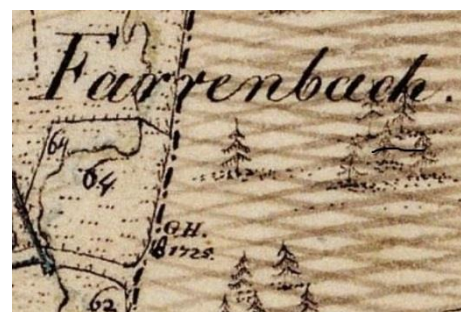 Farrenbach.
64
64
G.H.
1725.
62